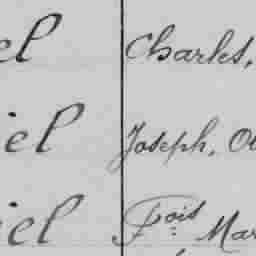 el Charles,
iel Joseph, Ol
iel Fois Mar